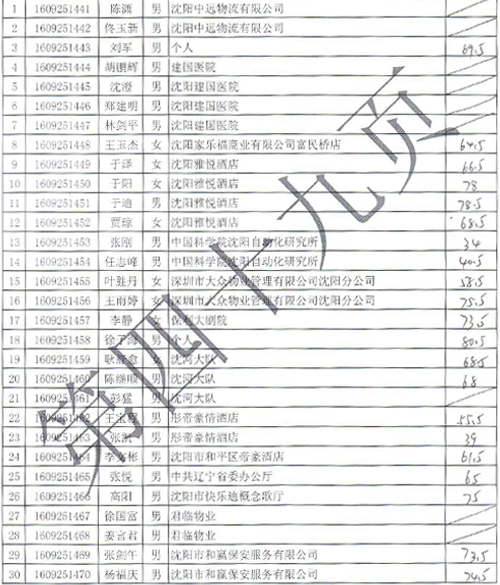 1 1609251441 陈 男 沈阳中远物流有限公司
2 1609251442 佟玉新 男 沈阳中远物流有限公司
3 1609251443 刘军 男 个人 69.5
4 1609251444 胡鹏辉 男 建国医院
5 1609251445 沈澄 男 沈阳建国医院
6 1609251446 郑建明 男 沈阳建国医院
7 1609251447 林剑平 男 沈阳建国医院
8 1609251448 王玉杰 女 沈阳家乐福商业有限公司富民桥店 64.5
9 1609251449 于泽 女 沈阳雅悦酒店 66.5
10 1609251450 于阳 女 沈阳雅悦酒店 78
11 1609251451 于迪 男 沈阳雅悦酒店 78.5
12 1609251452 贾琼 女 沈阳雅悦酒店 68.5
13 1609251453 张刚 男 中国科学院沈阳自动化研究所 34
14 1609251454 任志峰 男 中国科学院沈阳自动化研究所 40.5
15 1609251455 叶胜丹 女 深圳市大众物业管理有限公司沈阳分公司 58.5
16 1609251456 王雨婷 女 深圳市大众物业管理有限公司沈阳分公司 75.5
17 1609251457 李静 女 保利大剧院 73.5
18 1609251458 徐 男 个人 80.5
19 1609251459 耿 女 沈河大队 68.5
20 1609251460 陈继顺 男 沈河大队 68
21 1609251461 彭猛 男 沈河大队
22 1609251462 王宝 男 彤帝豪情酒店 55.5
23 1609251463 张 男 彤帝豪情酒店 39
24 1609251464 李 彬 男 沈阳市和平区帝豪酒店 61.5
25 1609251465 张悦 男 中共辽宁省委办公厅 65
26 1609251466 高阳 男 沈阳市快乐迪概念歌厅 75
27 1609251467 徐国富 男 君临物业
28 1609251468 姜言君 男 君临物业
29 1609251469 张剑午 男 沈阳市和赢保安服务有限公司 73.5
30 1609251470 杨福庆 男 沈阳市和赢保安服务有限公司 74.5
第四十九页